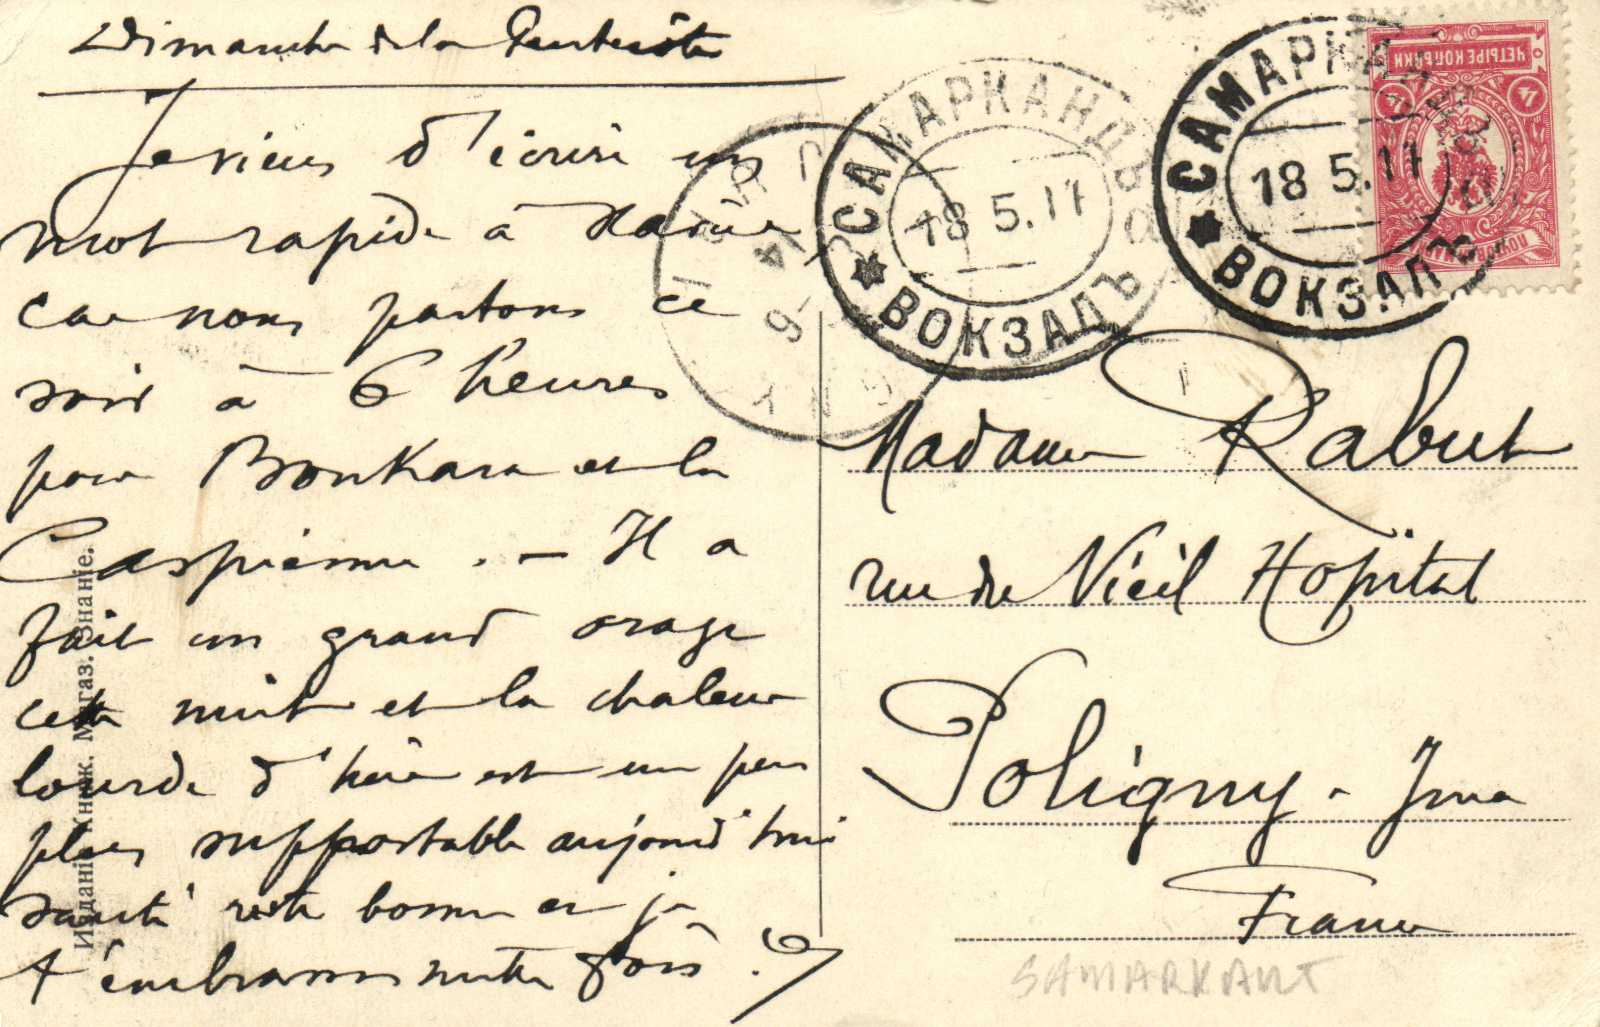 Dimanche de la Pentecôte
Je viens d'écrire un
mot rapide à
car nous partons ce
soir à 6 heures
pour Boukara et la
Caspienne. — Il a
fait un grand orage
cette nuit et la chaleur
lourde d'hier est un peu
plus supportable aujourd'hui
santé reste bonne et je
t'embrasse
Изданіе Книж. Магаз. Знаніе.
САМАРКАНДЪ
18 5.11
ВОКЗАЛЪ
САМАРКАНДЪ
18 5.11
ВОКЗАЛЪ
ЧЕТЫРЕ КОПѢЙКИ
4
4
ПОЧТОВАЯ МАРКА
Madame Rabut
rue du Vieil Hopital
Poligny - Jura
France
SAMARKANT